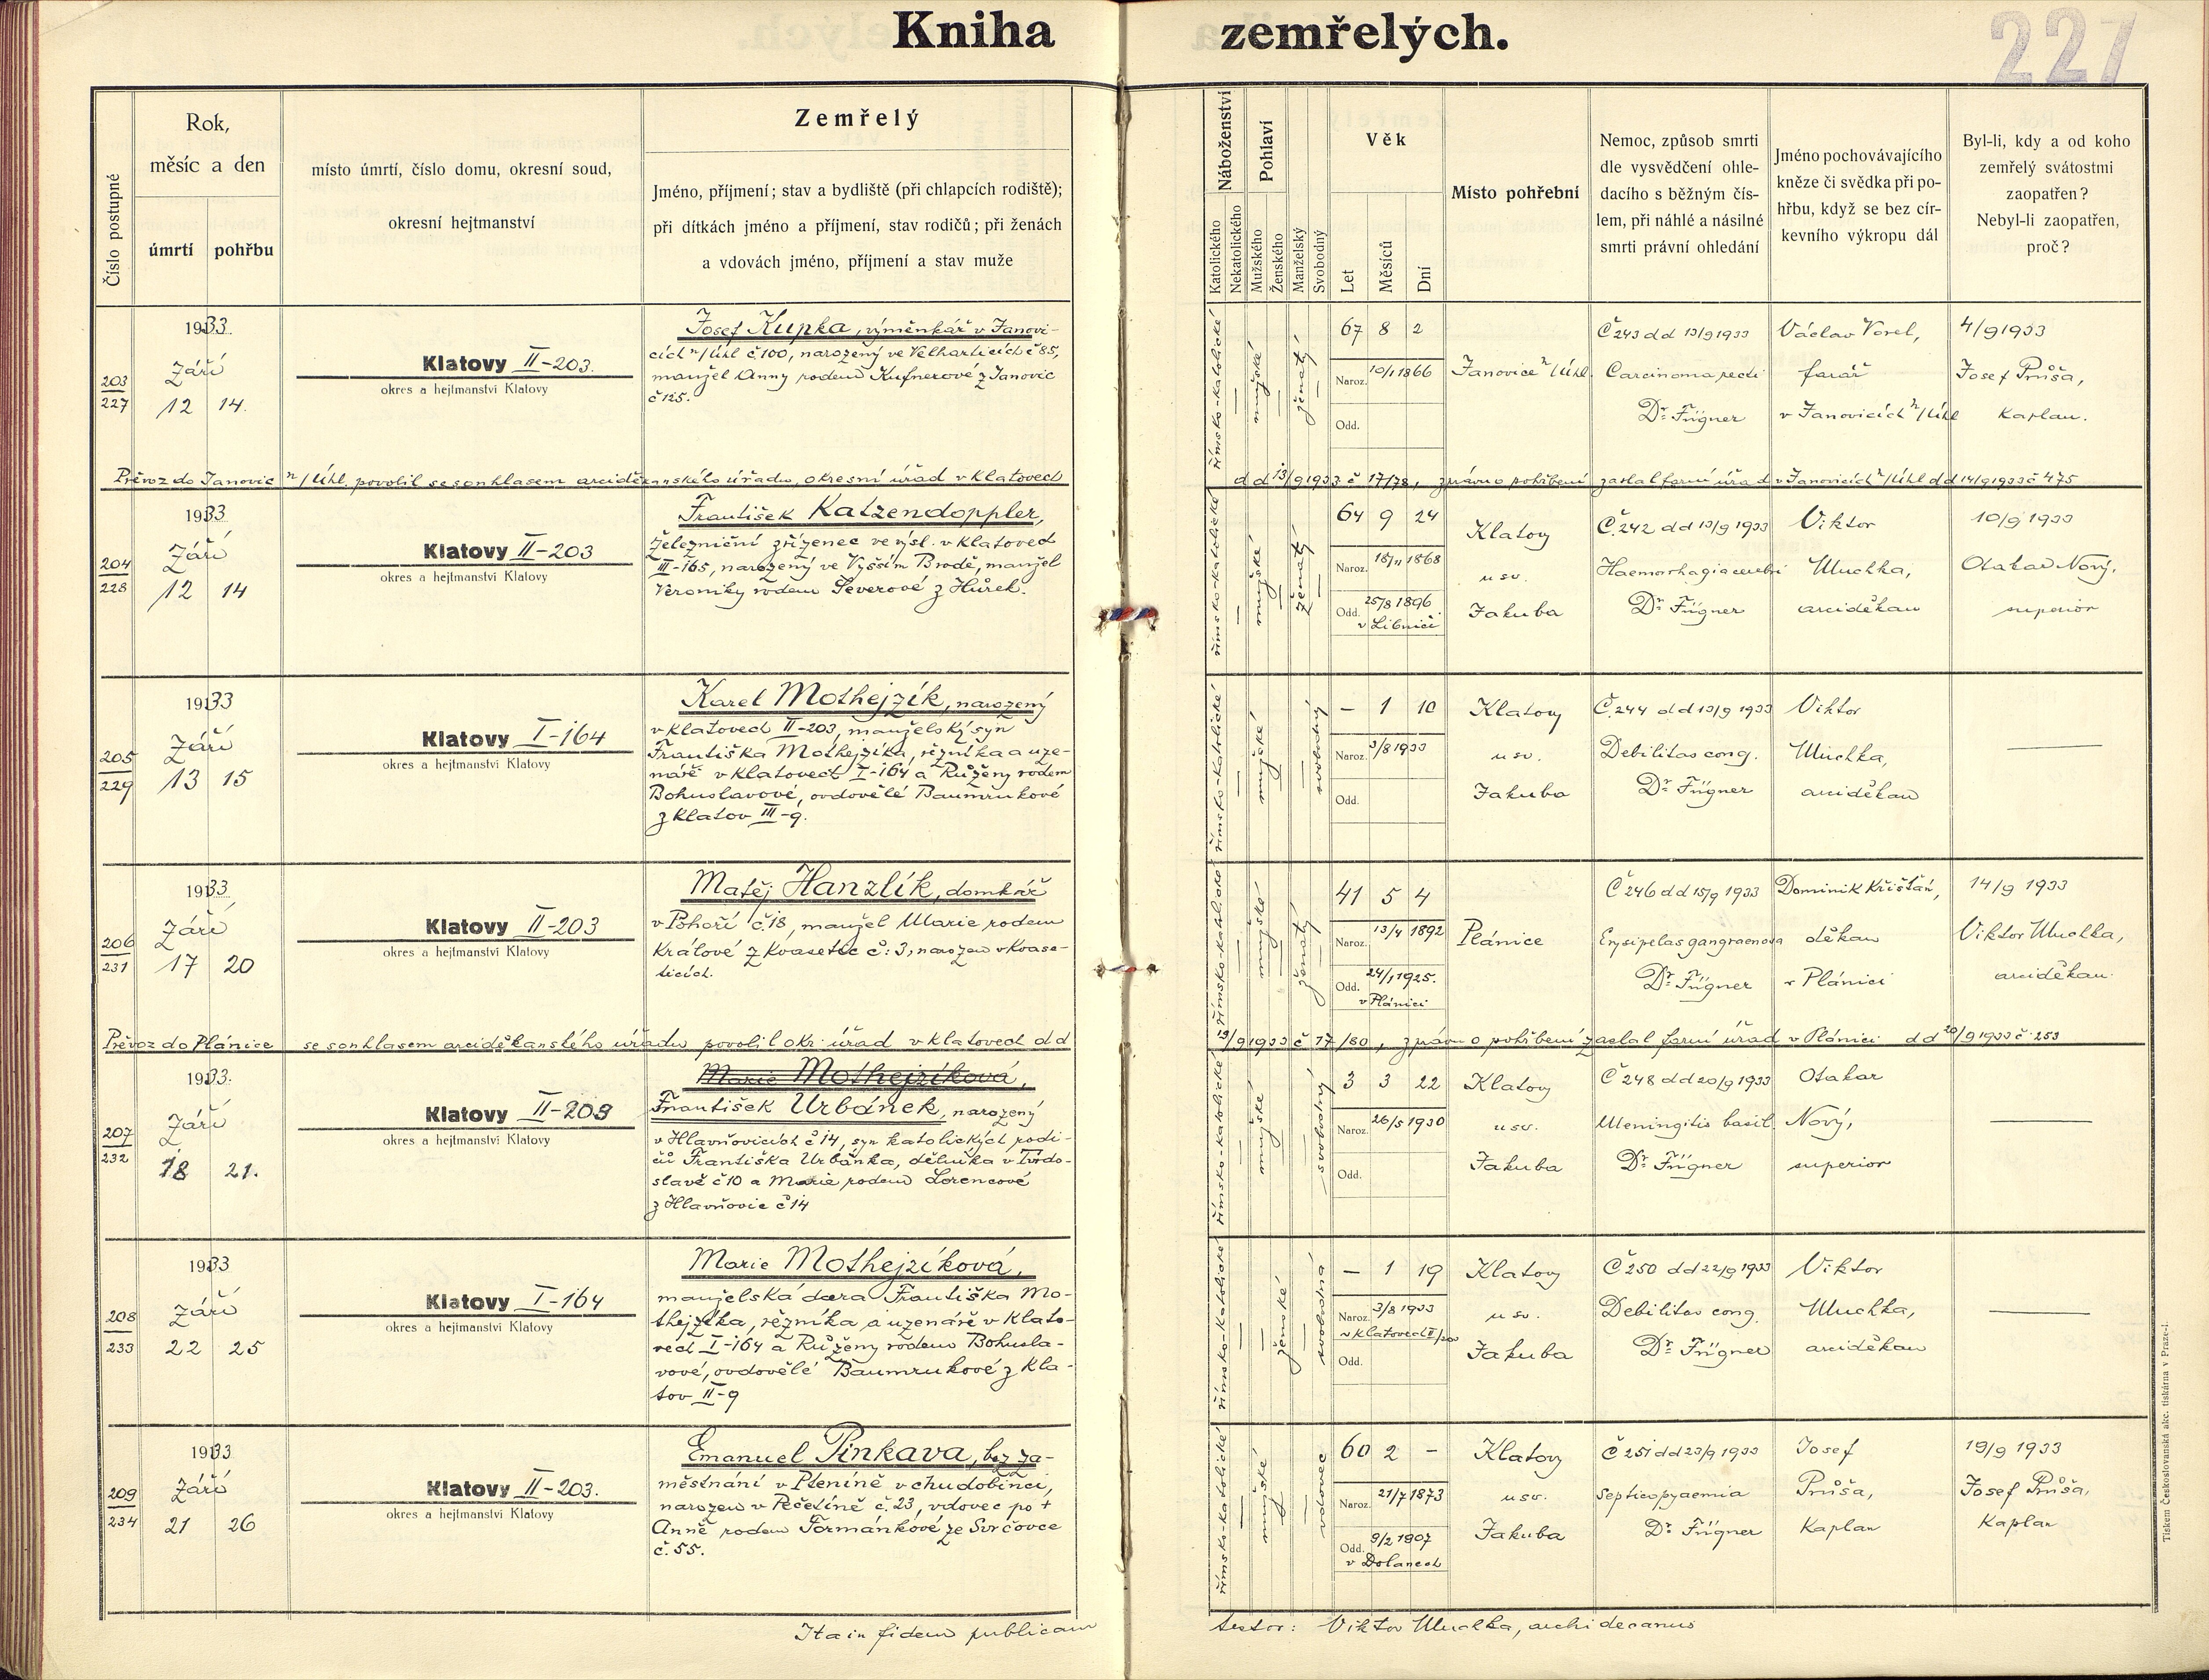 Kniha zemřelých.
227
Číslo postupné
Rok,
měsíc a den
úmrtí
pohřbu
místo úmrtí, číslo domu, okresní soud,
okresní hejtmanství
Zemřelý
Jméno, příjmení; stav a bydliště (při chlapcích rodiště);
při dítkách jméno a příjmení, stav rodičů; při ženách
a vdovách jméno, příjmení a stav muže
Náboženství
Katolického
Nekatolického
Pohlaví
Mužského
Ženského
Manželský
Svobodný
Věk
Let
Měsíců
Dní
Místo pohřební
Nemoc, způsob smrti
dle vysvědčení ohle-
dacího s běžným čís-
lem, při náhlé a násilné
smrti právní ohledání
Jméno pochovávajícího
kněze či svědka při po-
hřbu, když se bez cír-
kevního výkropu dál
Byl-li, kdy a od koho
zemřelý svátostmi
zaopatřen?
Nebyl-li zaopatřen,
proč?
203
227
1933.
Září
12 14.
Klatovy II-203.
okres a hejtmanství Klatovy
Josef Kupka, výměnkář v Janovi-
cích n/Úhl č 100, narozený ve Velharticích č 85,
manžel Anny rodem Kufnerové z Janovic
č 125.
římsko-katolické
mužské
ženatý
67 8 2
Naroz. 10/1 1866
Odd.
Janovice n/Úhl.
Č 243 dd 13/9 1933
Carcinoma recti
Dr. Fügner
Václav Vorel,
farář
v Janovicích n/Úhl
4/9 1933
Josef Průša,
Kaplan.
Převoz do Janovic n/Úhl. povolil se souhlasem arciděkanského úřadu, okresní úřad v Klatovech
dd 13/9 1933 č 17/78, zprávu o pohřbení zaslal farní úřad v Janovicích n/Úhl dd 14/9 1933 č 475
204
228
1933
Září
12 14
Klatovy II-203
okres a hejtmanství Klatovy
František Katzendoppler,
železniční zřízenec ve výsl. v Klatovech
III-165, narozený ve Vyšším Brodě, manžel
Veroniky rodem Severové z Hůrek.
římsko-katolické
mužské
ženatý
64 9 24
Naroz. 18/11 1868
Odd. 25/8 1896
v Libniči
Klatovy
u sv.
Jakuba
Č. 242 dd 13/9 1933
Haemorrhagia cerebri
Dr. Fügner
Viktor
Muchka,
arciděkan
10/9 1933
Otakar Nový,
superior
205
229
1933
Září
13 15
Klatovy I-164
okres a hejtmanství Klatovy
Karel Mothejzík, narozený
v Klatovech II-203, manželský syn
Františka Mothejzíka, řezníka a uze-
náře v Klatovech I-164 a Růženy rodem
Bohuslavové, ovdovělé Baumrukové
z Klatov III-9.
římsko-katolické
mužské
svobodný
– 1 10
Naroz. 3/8 1933
Odd.
Klatovy
u sv.
Jakuba
Č. 244 dd 13/9 1933
Debilitas cong.
Dr. Fügner
Viktor
Muchka,
arciděkan
206
231
1933
Září
17 20
Klatovy II-203
okres a hejtmanství Klatovy
Matěj Hanzlík, domkář
v Pohoří č. 18, manžel Marie rodem
Králové z Kvasetic č: 3, narozen v Kvase-
ticích.
římsko-katolické
mužské
ženatý
41 5 4
Naroz. 13/4 1892
Odd. 24/1 1925.
v Plánici
Plánice
Č 246 dd 15/9 1933
Erysipelas gangraenosa
Dr. Fügner
Dominik Křišťan,
děkan
v Plánici
14/9 1933
Viktor Muchka,
arciděkan.
Převoz do Plánice se souhlasem arciděkanského úřadu povolil okr. úřad v Klatovech dd
19/9 1933 č 17/80, zprávu o pohřbení zaslal farní úřad v Plánici dd 20/9 1933 č 253
207
232
1933.
Září
18 21.
Klatovy II-203
okres a hejtmanství Klatovy
Marie Mothejzíková,
František Urbánek, narozený
v Hlavňovicích č 14, syn katolických rodi-
čů Františka Urbánka, dělníka v Tvrdo-
slavě č 10 a Marie rodem Lorencové
z Hlavňovic č 14
římsko-katolické
mužské
svobodný
3 3 22
Naroz. 26/5 1930
Odd.
Klatovy
u sv.
Jakuba
Č 248 dd 20/9 1933
Meningitis basil.
Dr. Fügner
Otakar
Nový,
superior
208
233
1933
Září
22 25
Klatovy I-164
okres a hejtmanství Klatovy
Marie Mothejzíková,
manželská dcera Františka Mo-
thejzíka, řezníka a uzenáře v Klato-
vech I-164 a Růženy rodem Bohusla-
vové, ovdovělé Baumrukové z Kla-
tov II-9
římsko-katolické
ženské
svobodná
– 1 19
Naroz. 3/8 1933
v Klatovech II/203
Odd.
Klatovy
u sv.
Jakuba
Č 250 dd 22/9 1933
Debilitas cong.
Dr. Fügner
Viktor
Muchka,
arciděkan
209
234
1933
Září
21 26
Klatovy II-203.
okres a hejtmanství Klatovy
Emanuel Pinkava, bez za-
městnání v Pteníně v chudobinci,
narozen v Pečetíně č. 23, vdovec po +
Anně rodem Formánkové ze Svrčovce
č. 55.
římsko-katolické
mužské
vdovec
60 2 –
Naroz. 21/7 1873
Odd. 9/2 1907
v Dolanech
Klatovy
u sv.
Jakuba
Č 251 dd 23/9 1933
Septicopyaemia
Dr. Fügner
Josef
Průša,
Kaplan
19/9 1933
Josef Průša,
Kaplan
Ita in fidem publicam
testor: Viktor Muchka, archidecanus
Tiskem Československá akc. tiskárna v Praze-I.